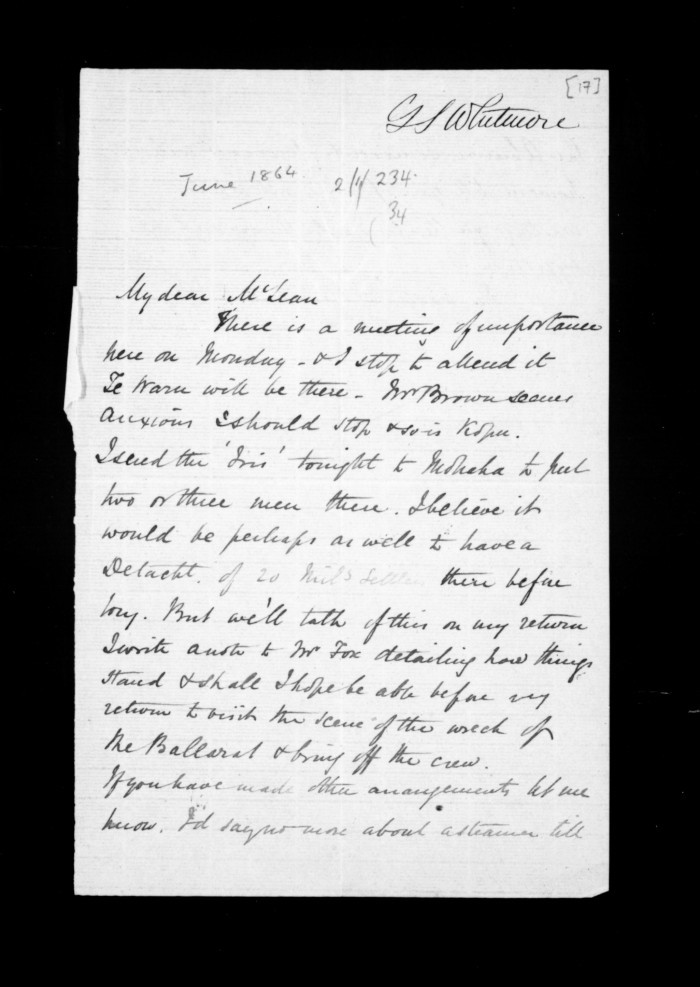 [17]
G S Whitmore
June 1864. 2/1/ 234.
34
My dear McLean
There is a meeting of importance
here on Monday - & I stop to attend it
Te Waru will be there - Mr Brown seems
anxious I should stop & so is Kopu.
I send the 'Iris' tonight to Mohaka to put
two or three men there. I believe it
would be perhaps as well to have a
Detacht. of 20 Mil. Settlers there before
long. But we'll talk of this on my return
I write a note to Mr Fox detailing how things
stand & shall I hope be able before my
return to visit the scene of the wreck of
the Ballarat & bring off the crew.
If you have made other arrangements let me
know. I'd say no more about a steamer till